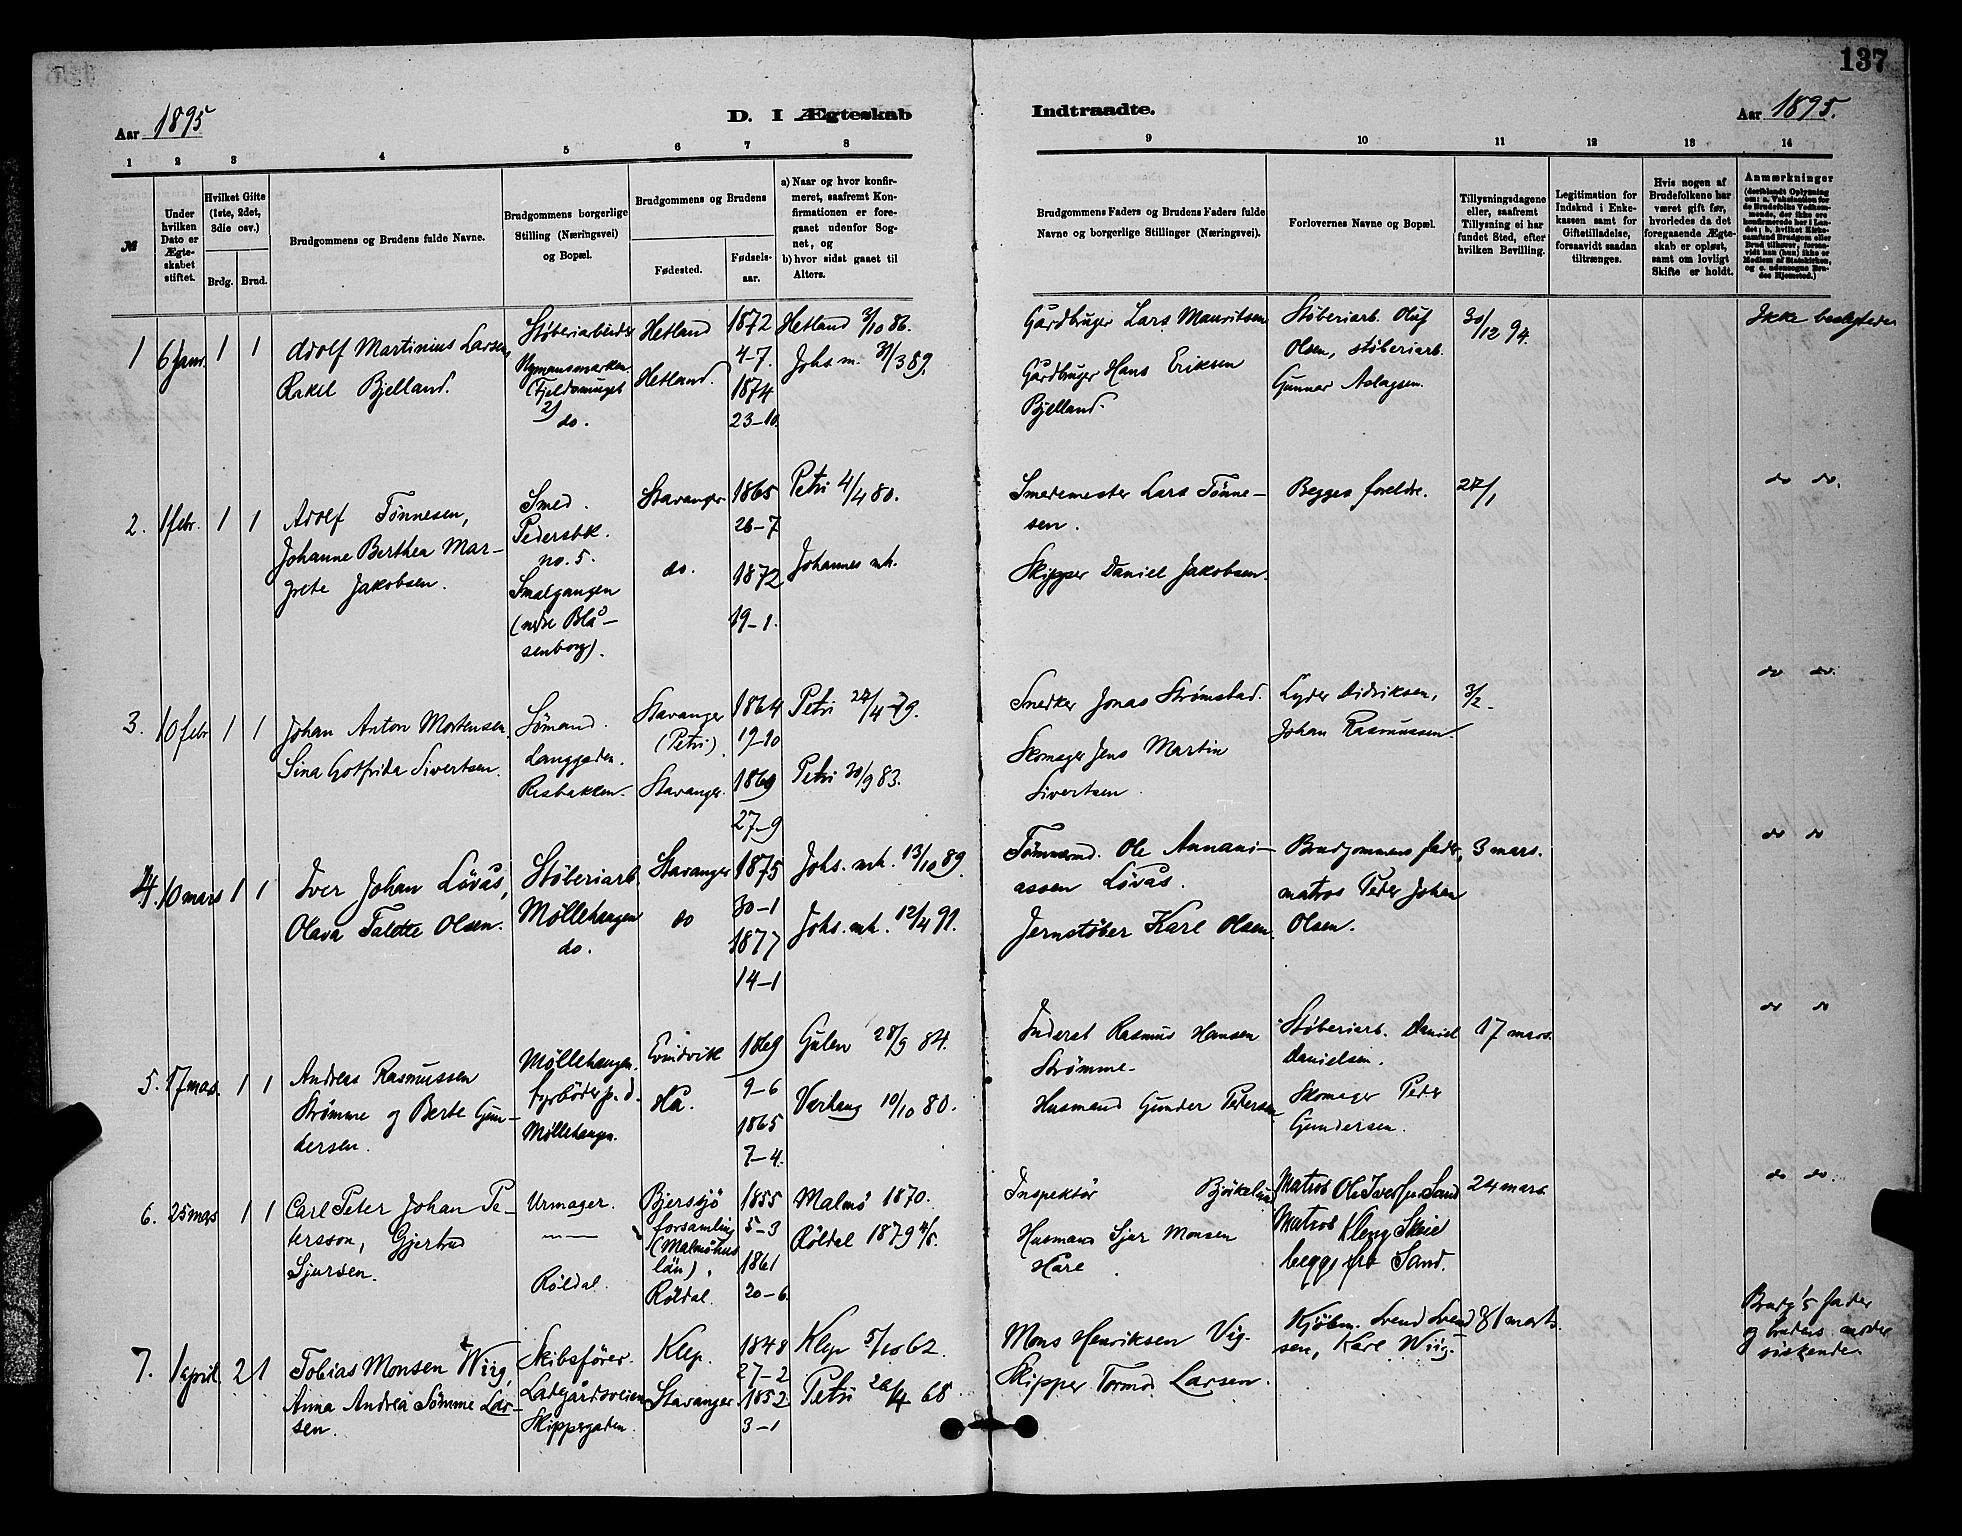 137
Aar 1895
D. I Ægteskab
Indtraadte.
Aar 1895.
1 2 3 4 5 6 7 8
9 10 11 12 13 14
№
Under hvilken Dato er Ægteskabet stiftet.
Hvilket Gifte (1ste, 2det, 3die osv.)
Brdg. Brud.
Brudgommens og Brudens fulde Navne.
Brudgommens borgerlige Stilling (Næringsvei) og Bopæl.
Brudgommens og Brudens
Fødested.
Fødselsaar.
a) Naar og hvor konfirmeret, saafremt Konfirmationen er foregaaet udenfor Sognet, og
b) hvor sidst gaaet til Alters.
Brudgommens Faders og Brudens Faders fulde Navne og borgerlige Stillinger (Næringsvei).
Forlovernes Navne og Bopæl.
Tillysningsdagene eller, saafremt Tillysning ei har fundet Sted, efter hvilken Bevilling.
Legitimation for Indskud i Enkekassen samt for Giftetilladelse, forsaavidt saadan tiltrænges.
Hvis nogen af Brudefolkene har været gift før, hvorledes da det foregaaende Ægteskab er opløst, samt om lovligt Skifte er holdt.
Anmærkninger
1 6 Janr. 1 1
Adolf Martinius Larsen,
Rakel Bjelland.
Støberiarbeider
(Fjeldsmuget
2)
do.
Hetland
Hetland.
1872
4-7.
1874
23-10.
Hetland 3/10 86.
Johs m. 31/3 89.
Gårdbruger Lars Mauritsen
Gårdbruger Hans Eriksen
Bjelland.
Støberiarb. Oluf
Olsen, støberiarb.
Gunnar Aslagsen.
30/12 94.
Ikke beslegtede
2. 1 febr. 1 1
Adolf Tønnesen,
Johanne Berthea Mar-
grete Jakobsen.
Smed.
Pedersbk.
no. 5.
Smalgangen
(nedre Blå-
senborg).
Stavanger
do.
1865
26-7
1872
19-1.
Petri 4/4 80.
Johannes mh.
Smedemester Lars Tønne-
sen.
Skipper Daniel Jakobsen.
Begges foreldre.
27/1
do do.
3. 10 febr 1 1
Johan Anton Mortensen.
Sina Gotfrida Sivertsen.
Sømand.
Langgaden.
Risbakken.
Stavanger
(Petri).
Stavanger.
1864
19-10
1869
27-9
Petri 27/4 79.
Petri 30/9 83.
Snedker Jonas Strømstad.
Skomager Jens Martin
Sivertsen.
Lyder Didriksen,
Johan Rasmussen.
3/2-
do do.
4. 10 mars 1 1
Iver Johan Løvås,
Olava Talette Olsen.
Støberiarb.
Møllehaugen
do.
Stavanger
do
1875
30-1
1877
14-1
Johs. mh. 13/10 89.
Johs. mh. 12/4 91.
Tømmermd. Ole Annani-
assen Løvås.
Jernstøber Karl Olsen.
Brudgommens fader,
matros Peder Johan
Olsen.
3 mars.
do do
5. 17 mars. 1 1
Andreas Rasmussen
Strømme og Berte Gun-
dersen.
Møllehaugen.
fyrbøder p. d.
Møllehaugen.
Evindvik
Hå.
1869
9-6
1865
7-4.
Gulen 28/9 84.
Varhaug 10/10 80.
Inderst Rasmus Hansen
Strømme-
Husmand Gunder Petersen
Støberiarb. Daniel
Danielsen.
Skomager Peder
Gundersen.
17 mars.
do do
6. 25 mars 1 1
Carl Peter Johan Pe-
tersson, Gjertrud
Sjursen.
Urmager.
Røldal.
Bjersjö
forsamling
(Malmöhus
län).
Røldal.
1855
5-3
1861
20-6.
Malmö 1870.
Røldal 1879
Inspektør
Husmand Sjur Monsen
Hare
Matros Ole Iversen Sand
Matros Kleng Skeie
begge fra Sand.
24 mars.
do do.
7. 1 april 2 1
Tobias Monsen Wiig,
Anna Andrea Sømme Lar-
sen.
Skibsfører.
Ladgårdsveien
Skippergaden.
Klep.
Stavanger
1848
27-2
1852
3-1
Klep 5/10 62.
Petri 26/4 68
Mons Henriksen Vig.
Skipper Tormod Larsen.
Kjøbm. Svend Svend
sen, Karl Wiig.
31 marts.
Brudg's fader
og brudens moder
søskende.